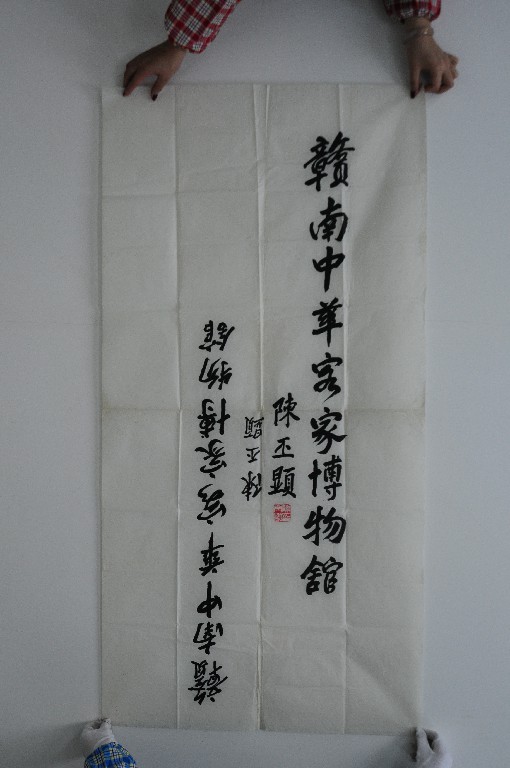 贛南中華客家博物館
陳丕顯
陳丕顯
贛南中華客家博物館